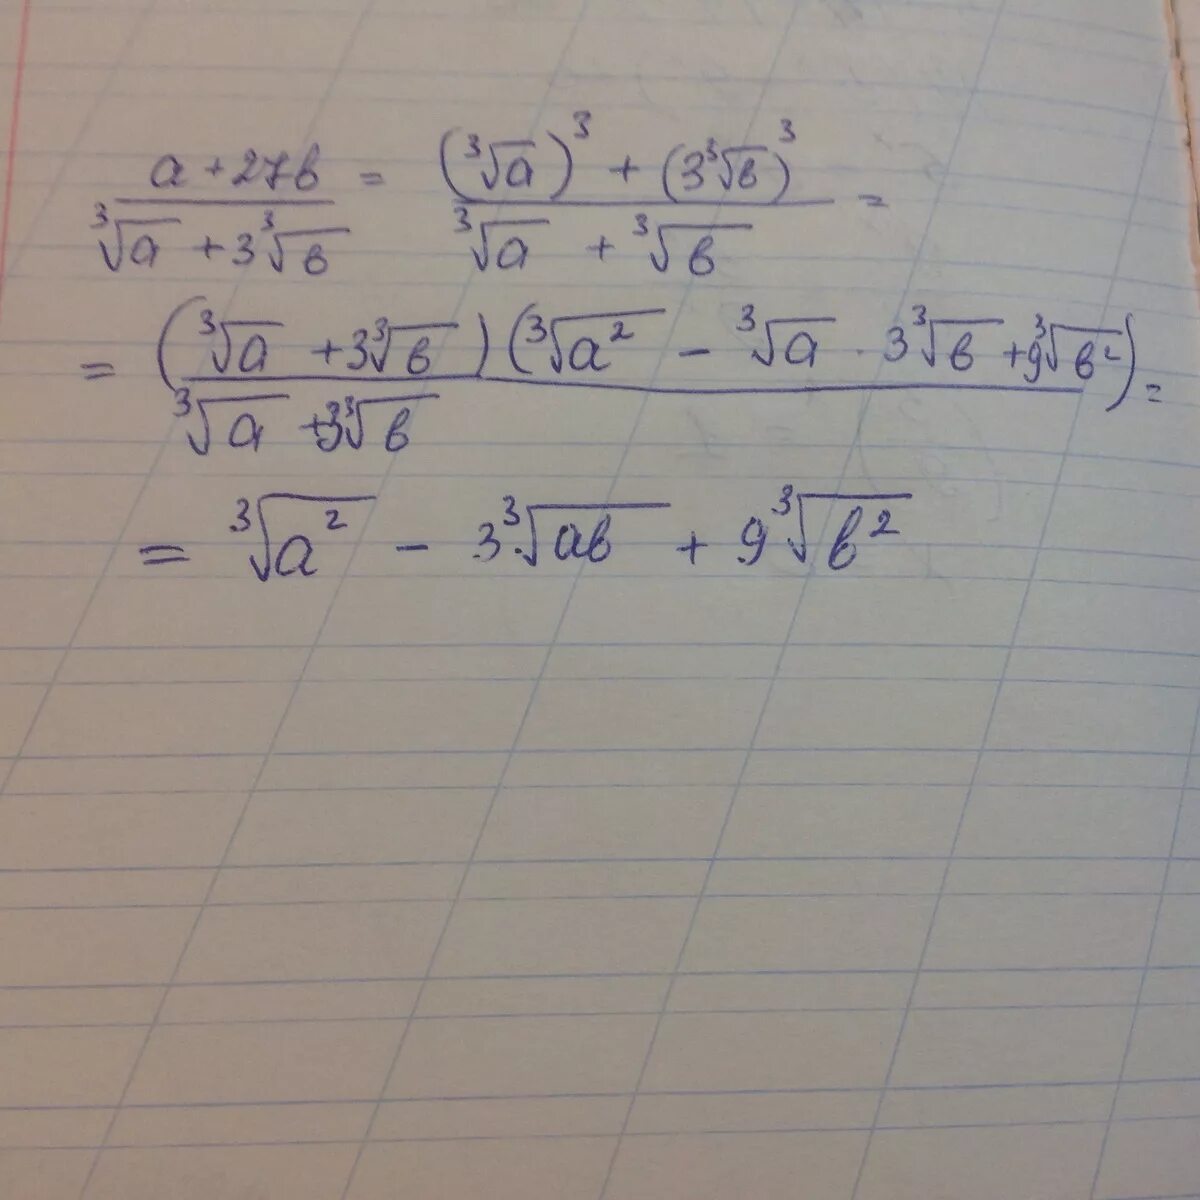 \frac{a + 27b}{\sqrt[3]{a} + 3\sqrt[3]{b}} = \frac{(\sqrt[3]{a})^3 + (3\sqrt[3]{b})^3}{\sqrt[3]{a} + \sqrt[3]{b}} =
= \frac{(\sqrt[3]{a} + 3\sqrt[3]{b})(\sqrt[3]{a^2} - \sqrt[3]{a} \cdot 3\sqrt[3]{b} + 9\sqrt[3]{b^2})}{\sqrt[3]{a} + 3\sqrt[3]{b}} =
= \sqrt[3]{a^2} - 3\sqrt[3]{ab} + 9\sqrt[3]{b^2}